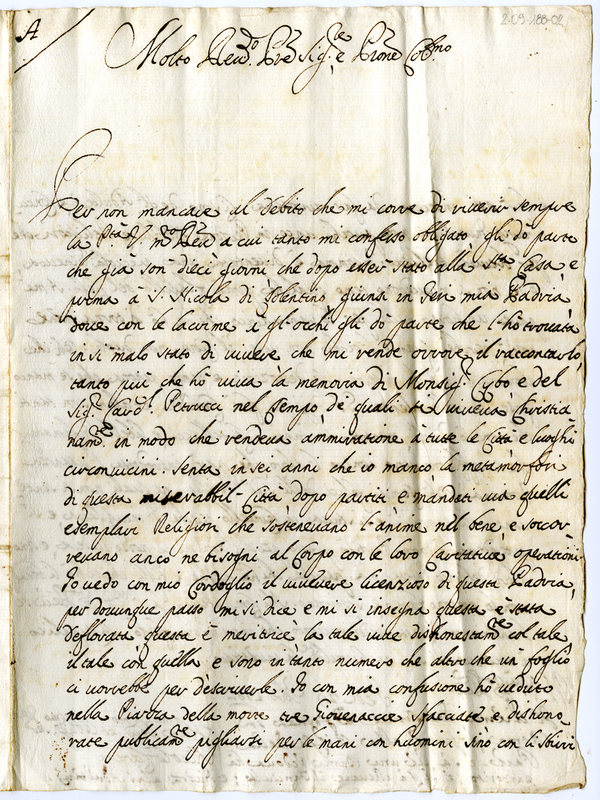 A
2-09-188-02
Molto Rev.do P.re Sig.re e P.rone Col.mo
Per non mancare al debito che mi corre di riverir sempre
la P.tà V. M.to Rev. a cui tanto mi confesso obligato gli dò parte
che già son dieci giorni che dopo esser stato alla S.ta Casa, e
prima à S. Nicola di Tolentino giunsi in Jeri mia Padria,
dove con le lacrime à gl'occhi gli dò parte che l'hò trovata
in sì malo stato di vivere che mi rende orrore il raccontarlo,
tanto più che hò viva la memoria di Monsig.r Cybo e del
Sig.r Card.l Petrucci nel tempo de quali si viveva Christia
nam.te in modo che rendeva ammiratione à tutte le Città e luoghi
circonvicini. Senta in sei anni che io manco la metamorfosi
di questa miserabbil Città dopo partiti e mandati via quelli
esemplari Religiosi che sostenevano l'anime nel bene, e soccor
revano anco ne bisogni al Corpo con le loro Caritative operationi
Io vedo con mio Cordoglio il vivere licenzioso di questa Padria,
per dovunque passo mi si dice e mi si insegna questa è stata
deflorata questa è meritrice la tale vive dishonestam.te col tale
il tale con quella e sono in tanto numero che altro che un foglio
ci vorrebbe per descriverle. Io con mia confusione hò veduto
nella Piazza della morte tre Giovenaccie sfacciate e dishono
rate publicam.te pigliarsi per le mani con huomini sino con li sbirri